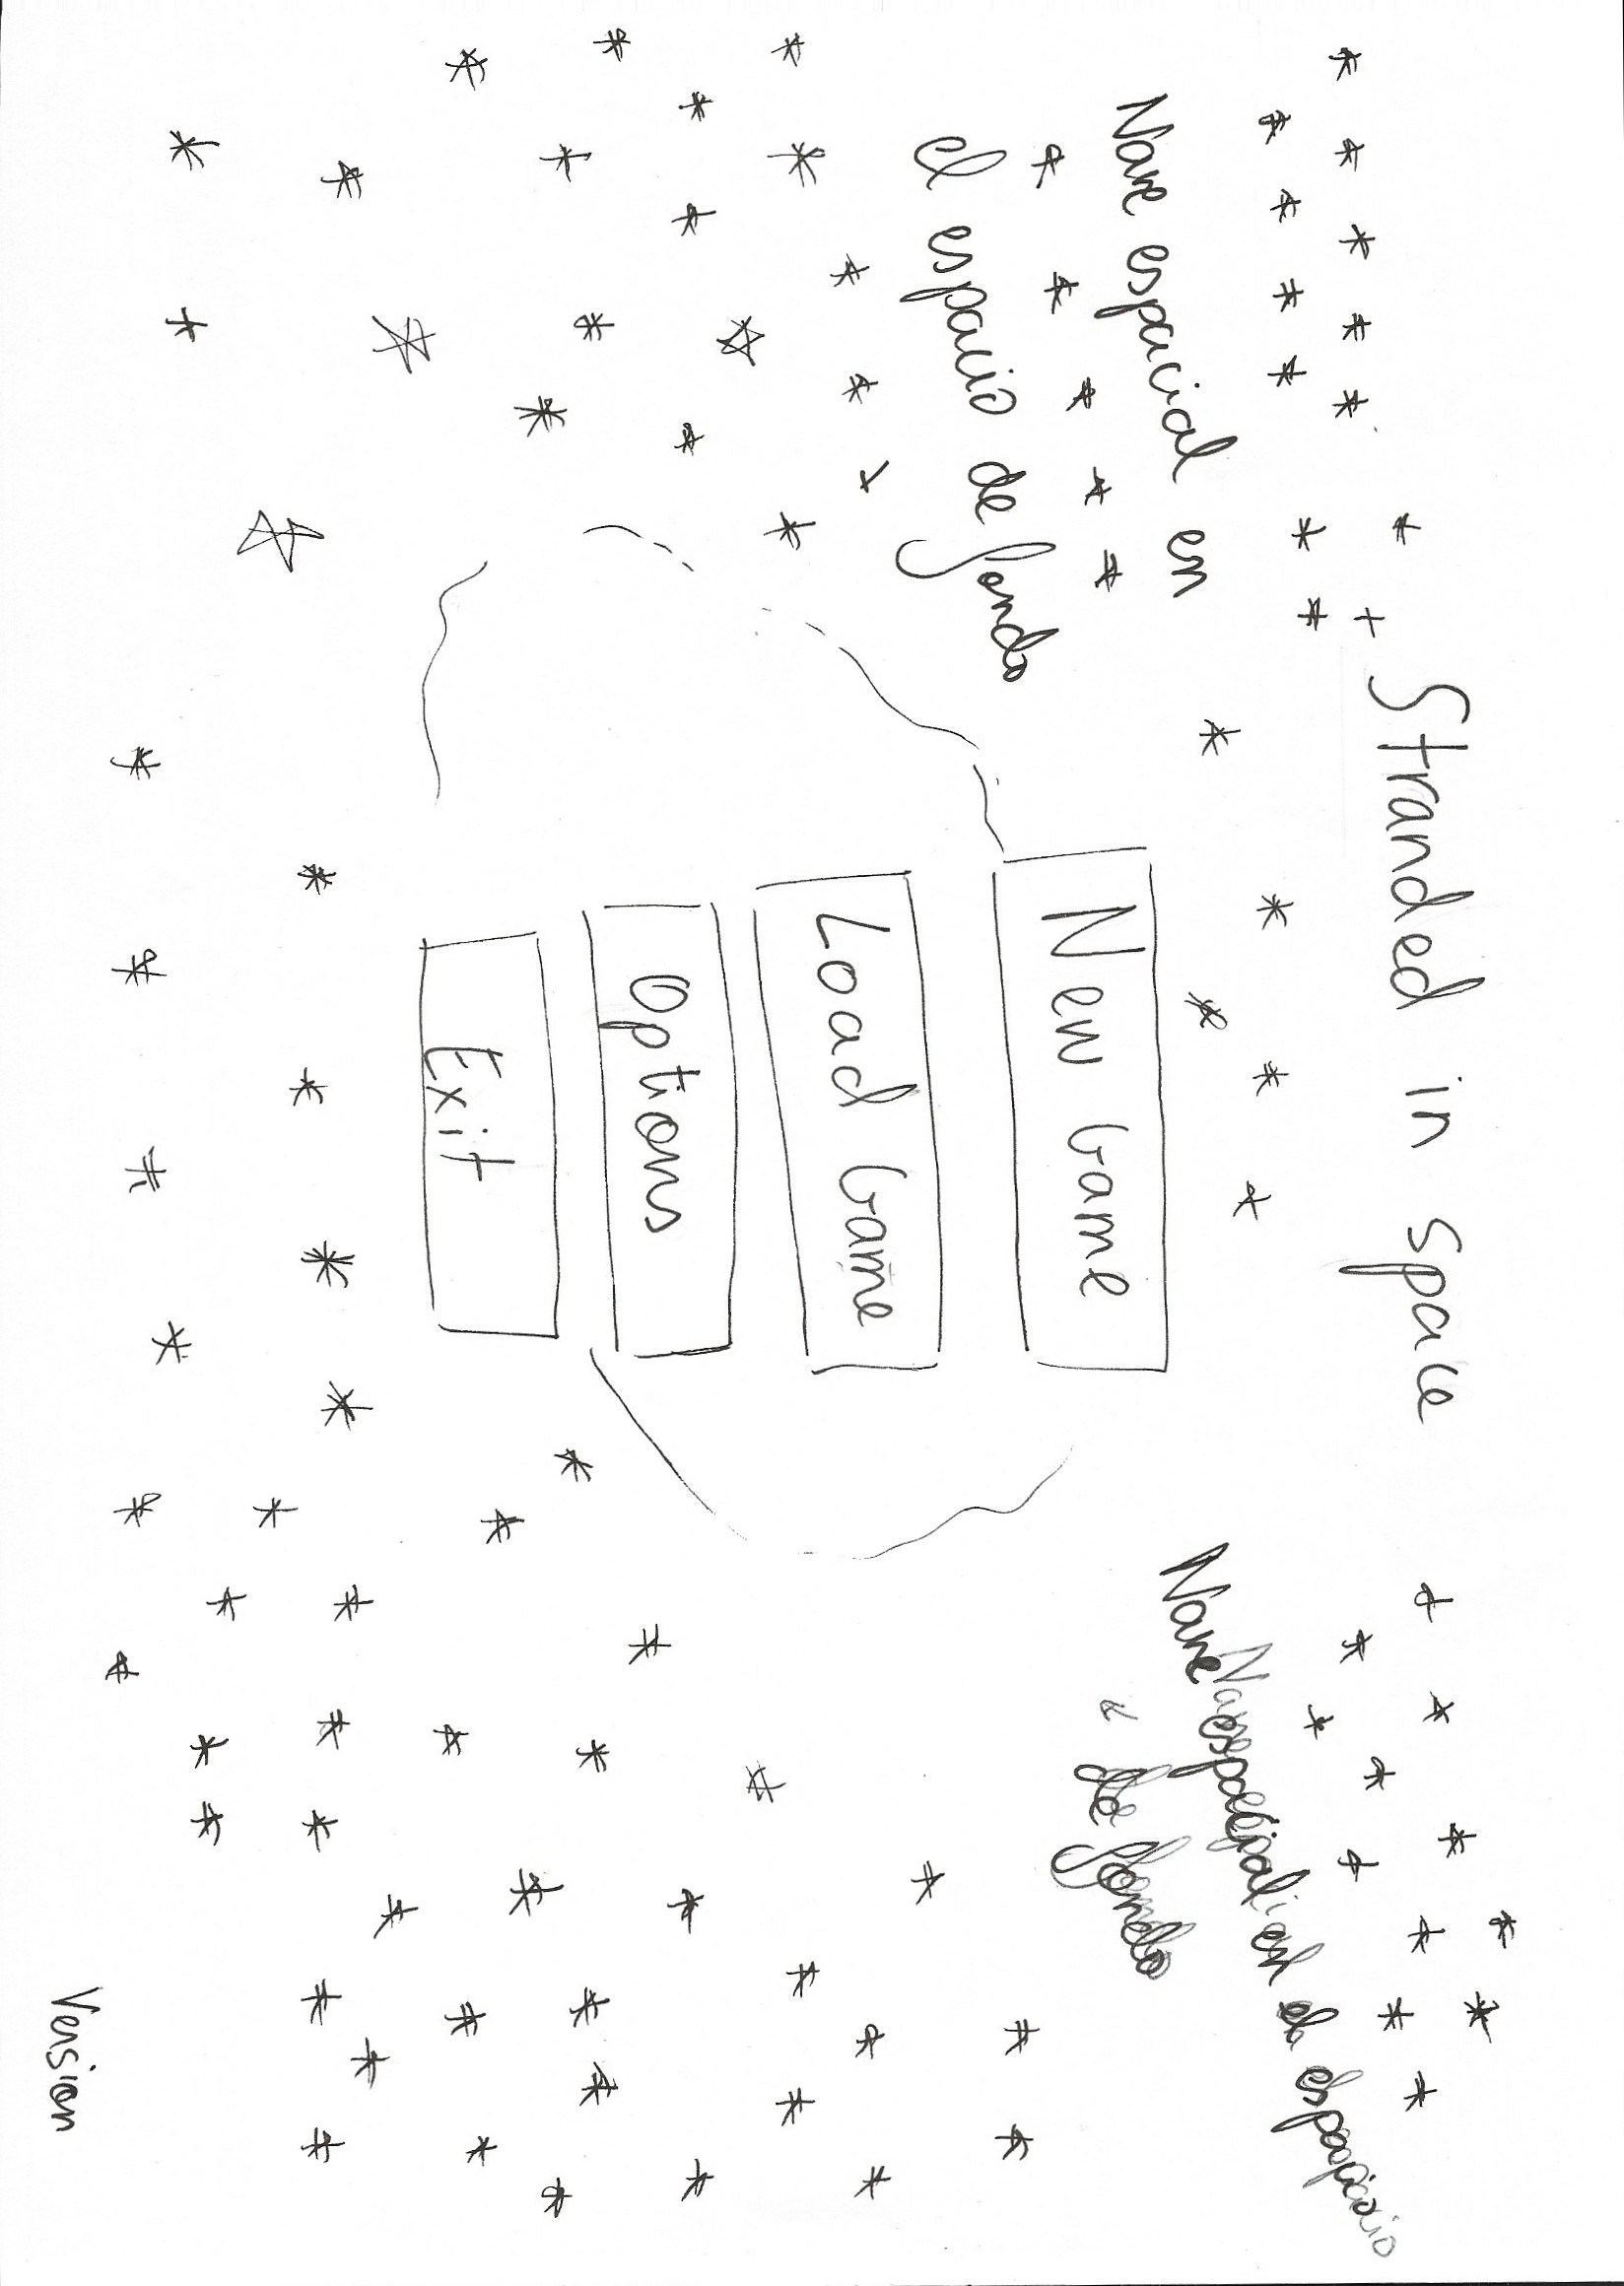 Stranded in space
Nave espacial en
el espacio de fondo
Nave espacial en el espacio
de fondo
New Game
Load Game
Options
Exit
Version